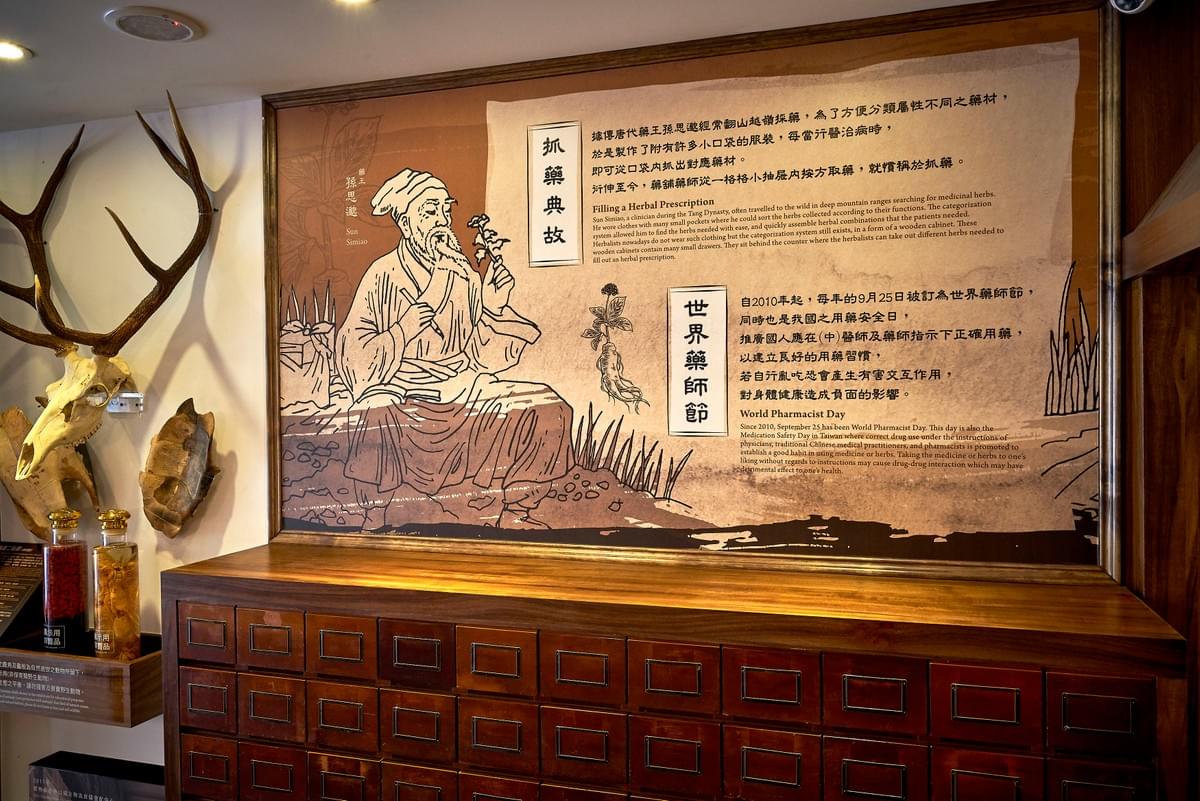 藥王
孫思邈
Sun
Simiao
抓藥典故
據傳唐代藥王孫思邈經常翻山越嶺採藥，為了方便分類屬性不同之藥材，
於是製作了附有許多小口袋的服裝，每當行醫治病時，
即可從口袋內抓出對應藥材。
衍伸至今，藥舖藥師從一格格小抽屜內按方取藥，就慣稱於抓藥。
Filling a Herbal Prescription
Sun Simiao, a clinician during the Tang Dynasty, often travelled to the wild in deep mountain ranges searching for medicinal herbs.
He wore clothes with many small pockets where he could sort the herbs collected according to their functions. The categorization
system allowed him to find the herbs needed with ease, and quickly assemble herbal combinations that the patients needed.
Herbalists nowadays do not wear such clothing but the categorization system still exists, in a form of a wooden cabinet. These
wooden cabinets contain many small drawers. They sit behind the counter where the herbalists can take out different herbs needed to
fill out an herbal prescription.
世界藥師節
自2010年起，每年的9月25日被訂為世界藥師節，
同時也是我國之用藥安全日，
推廣國人應在(中)醫師及藥師指示下正確用藥，
以建立良好的用藥習慣，
若自行亂吃恐會產生有害交互作用，
對身體健康造成負面的影響。
World Pharmacist Day
Since 2010, September 25 has been World Pharmacist Day. This day is also the
Medication Safety Day in Taiwan where correct drug use under the instructions of
physicians, traditional Chinese medical practitioners, and pharmacists is promoted to
establish a good habit in using medicine or herbs. Taking the medicine or herbs to one's
liking without regards to instructions may cause drug-drug interaction which may have
detrimental effect to one's health.